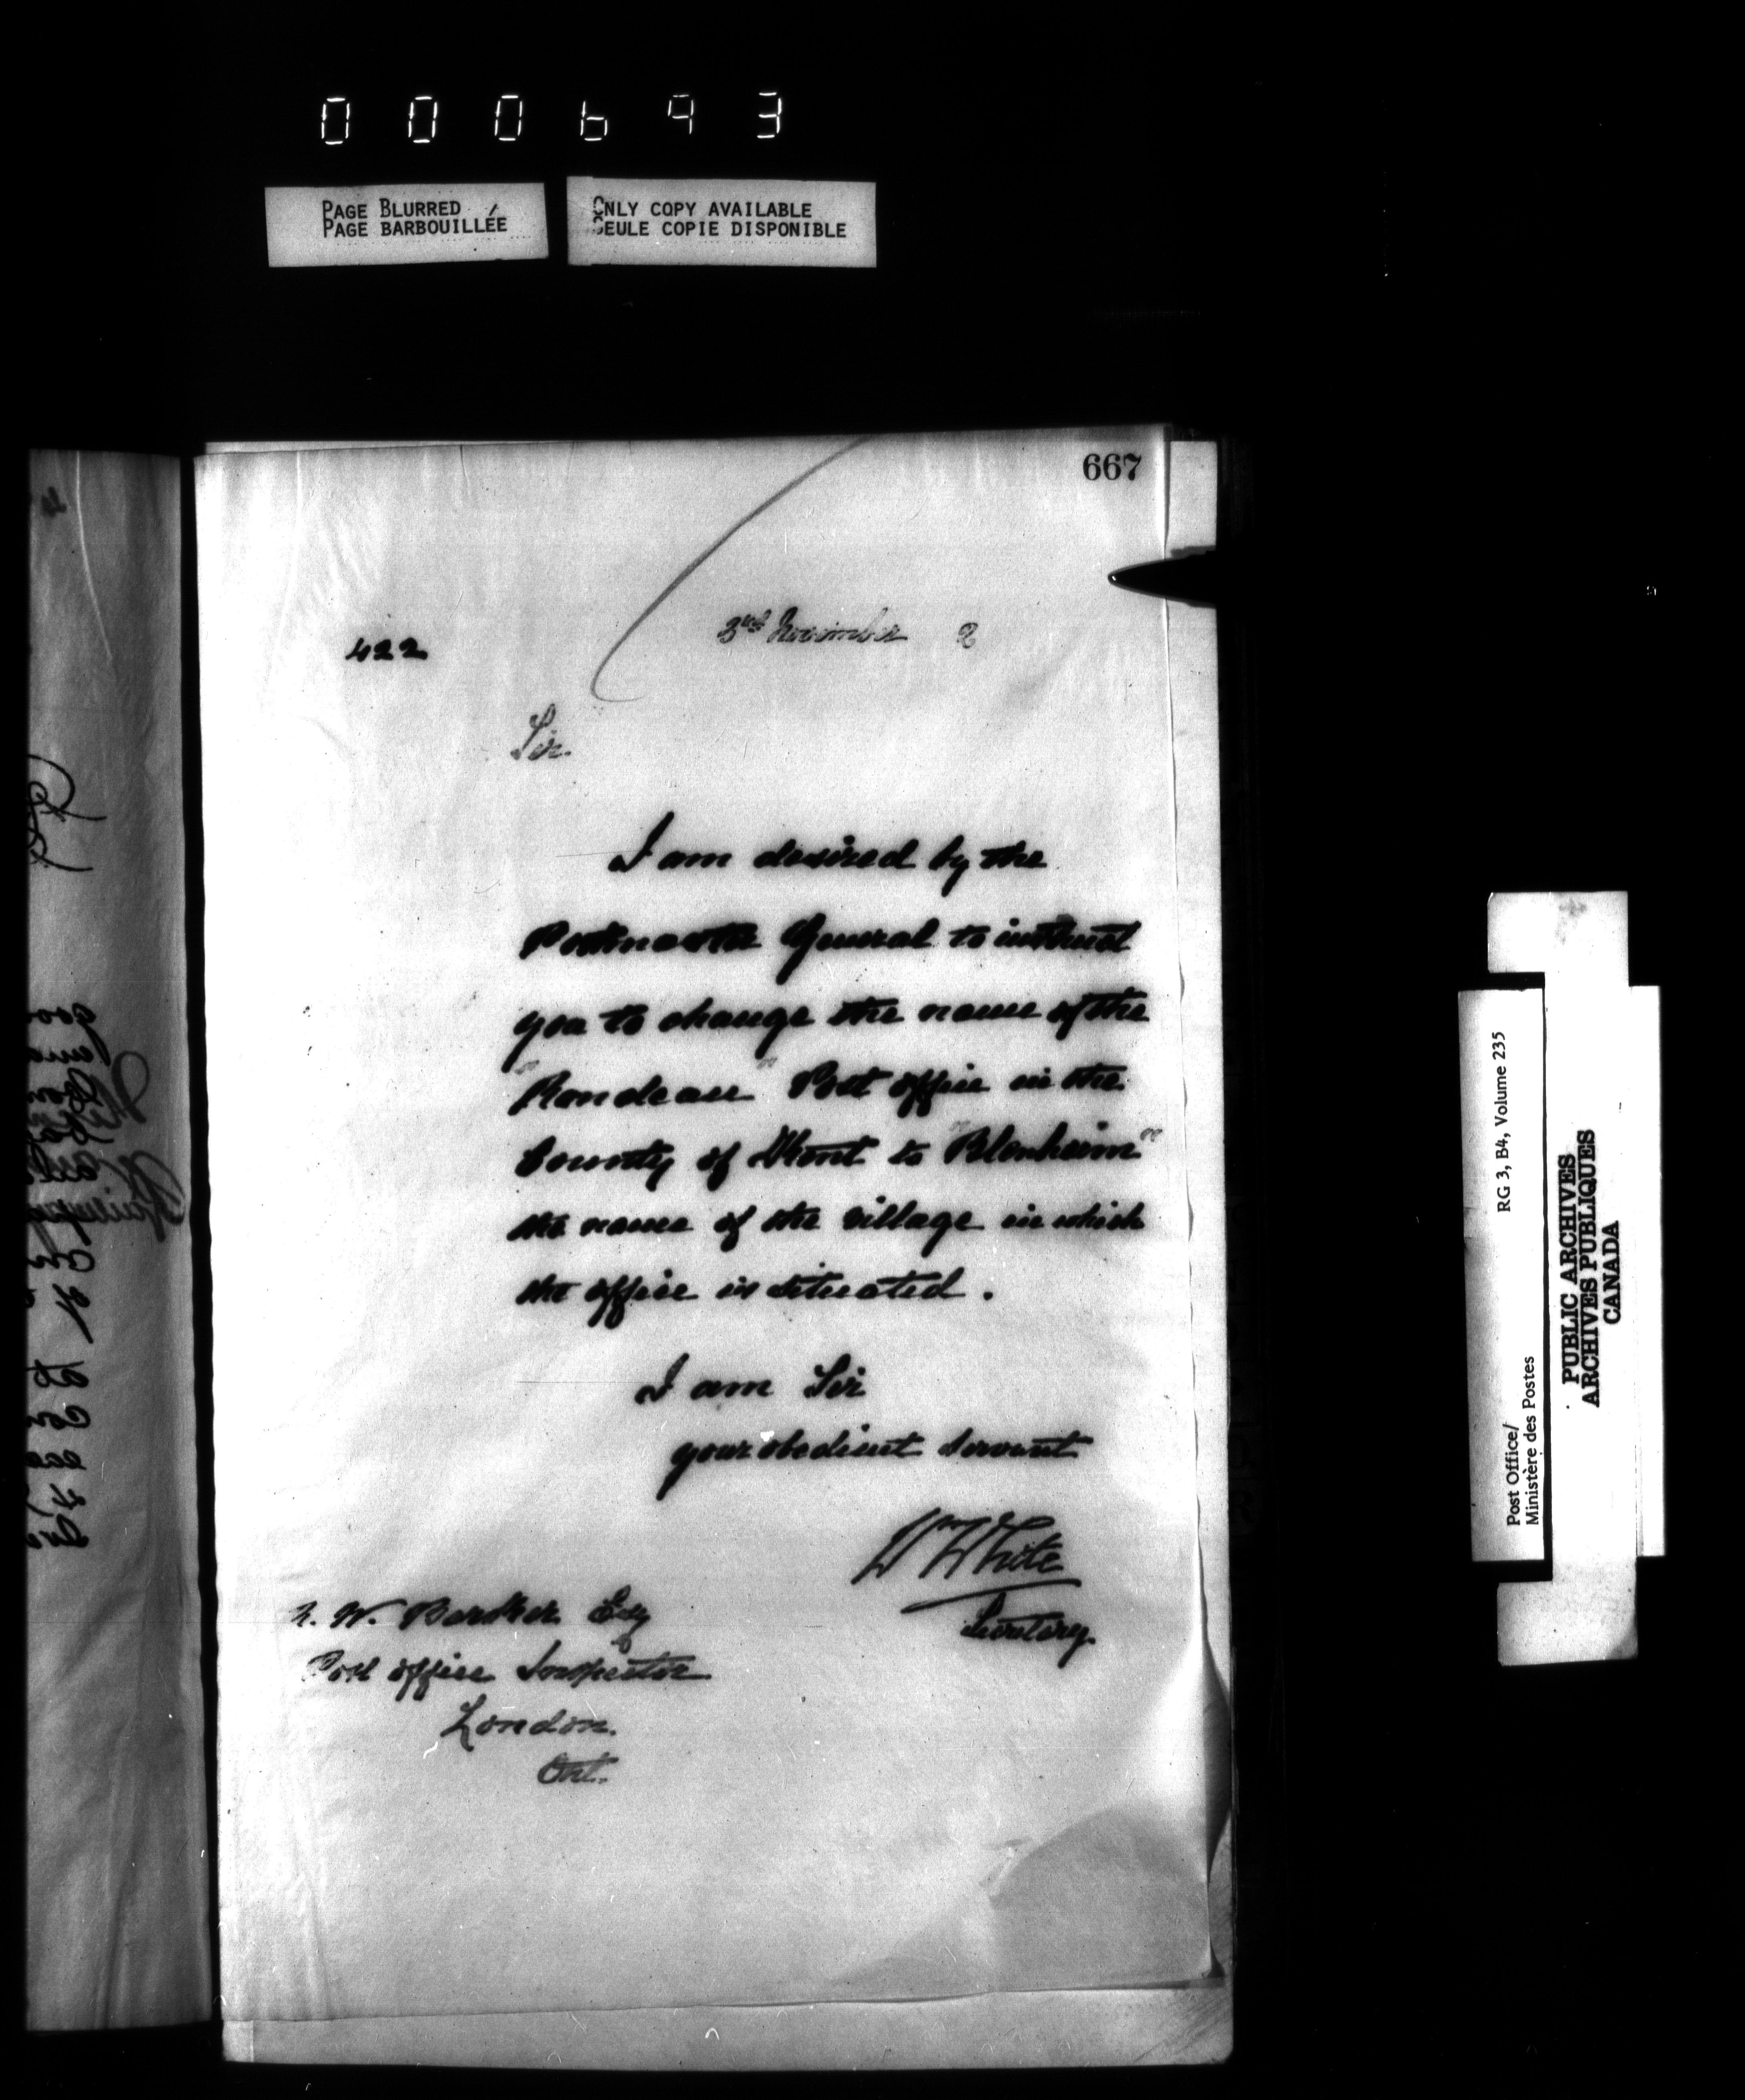 000693
PAGE BLURRED
PAGE BARBOUILLÉE
ONLY COPY AVAILABLE
SEULE COPIE DISPONIBLE
667
422
3rd November 2
Sir.
I am desired by the
Postmaster General to instruct
you to change the name of the
"Rondeau" Post office in the
County of Kent to "Blenheim"
the name of the village in which
the office is situated.
I am Sir
your obedient servant
W White
Secretary.
R. W. Barker Esq
Post office Inspector
London.
Ont.
RG 3, B4, Volume 235
Post Office/
Ministère des Postes
PUBLIC ARCHIVES
ARCHIVES PUBLIQUES
CANADA